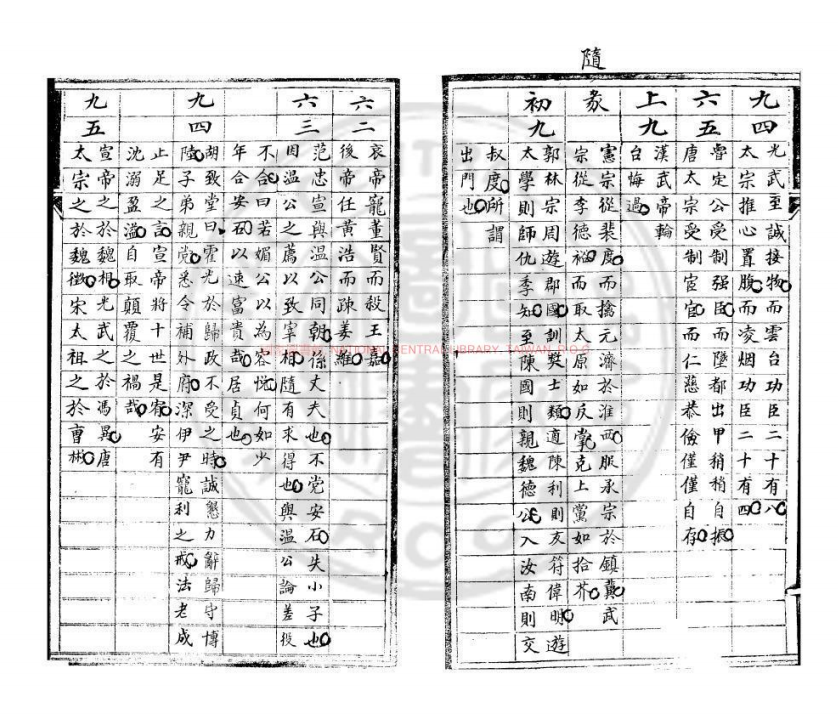 隨
九四
光武至誠接物而雲台功臣二十有八
太宗推心置腹而凌烟功臣二十有四
六五
魯定公受制强臣而墮都出甲稍稍自振
唐太宗受制宦官而仁慈恭儉僅僅自存
上九
漢武帝輪
台悔過
彖
憲宗從裴度而擒元濟於淮西服承宗於鎮冀武
宗從李德裕而取太原如反掌克上黨如拾芥
初九
郭林宗周遊郡國訓奬士類適陳利則友符偉明遊
太學則師仇季知至陳國則親魏德公入汝南則交
叔度所謂
出門也
六二
哀帝寵董賢而殺王嘉
後帝任黃浩而疎姜維
六三
范忠宣與溫公同朝係丈夫也不党安石失小子也
因溫公之薦以致宰相隨有求得也與溫公論差役
不合曰若媚公以為容悅何如少
年合安石以速富貴哉居貞也
九四
胡致堂曰霍光於歸政不受之時誠懇力辭歸守博
陸子弟親党悉令補外府深伊尹寵利之戒法老成
止足之言宣帝將十世是宥安有
沈溺盈溢自取顛覆之禍哉
九五
宣帝之於魏相光武之於馮異唐
太宗之於魏徵宋太祖之於曹彬
NATIONAL CENTRAL LIBRARY, TAIWAN, R.O.C